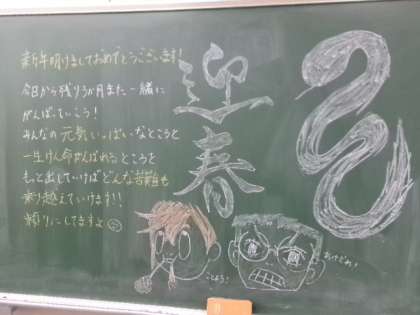 新年明けましておめでとうございます!
今日から残り3か月また一緒に
がんばっていこう!
みんなの元気いっぱいなところと
一生けん命がんばれるところを
もっと出していけばどんな苦難も
乗り越えていけます!!
頼りにしてますよ
迎春
ことよろ!
あけおめ!